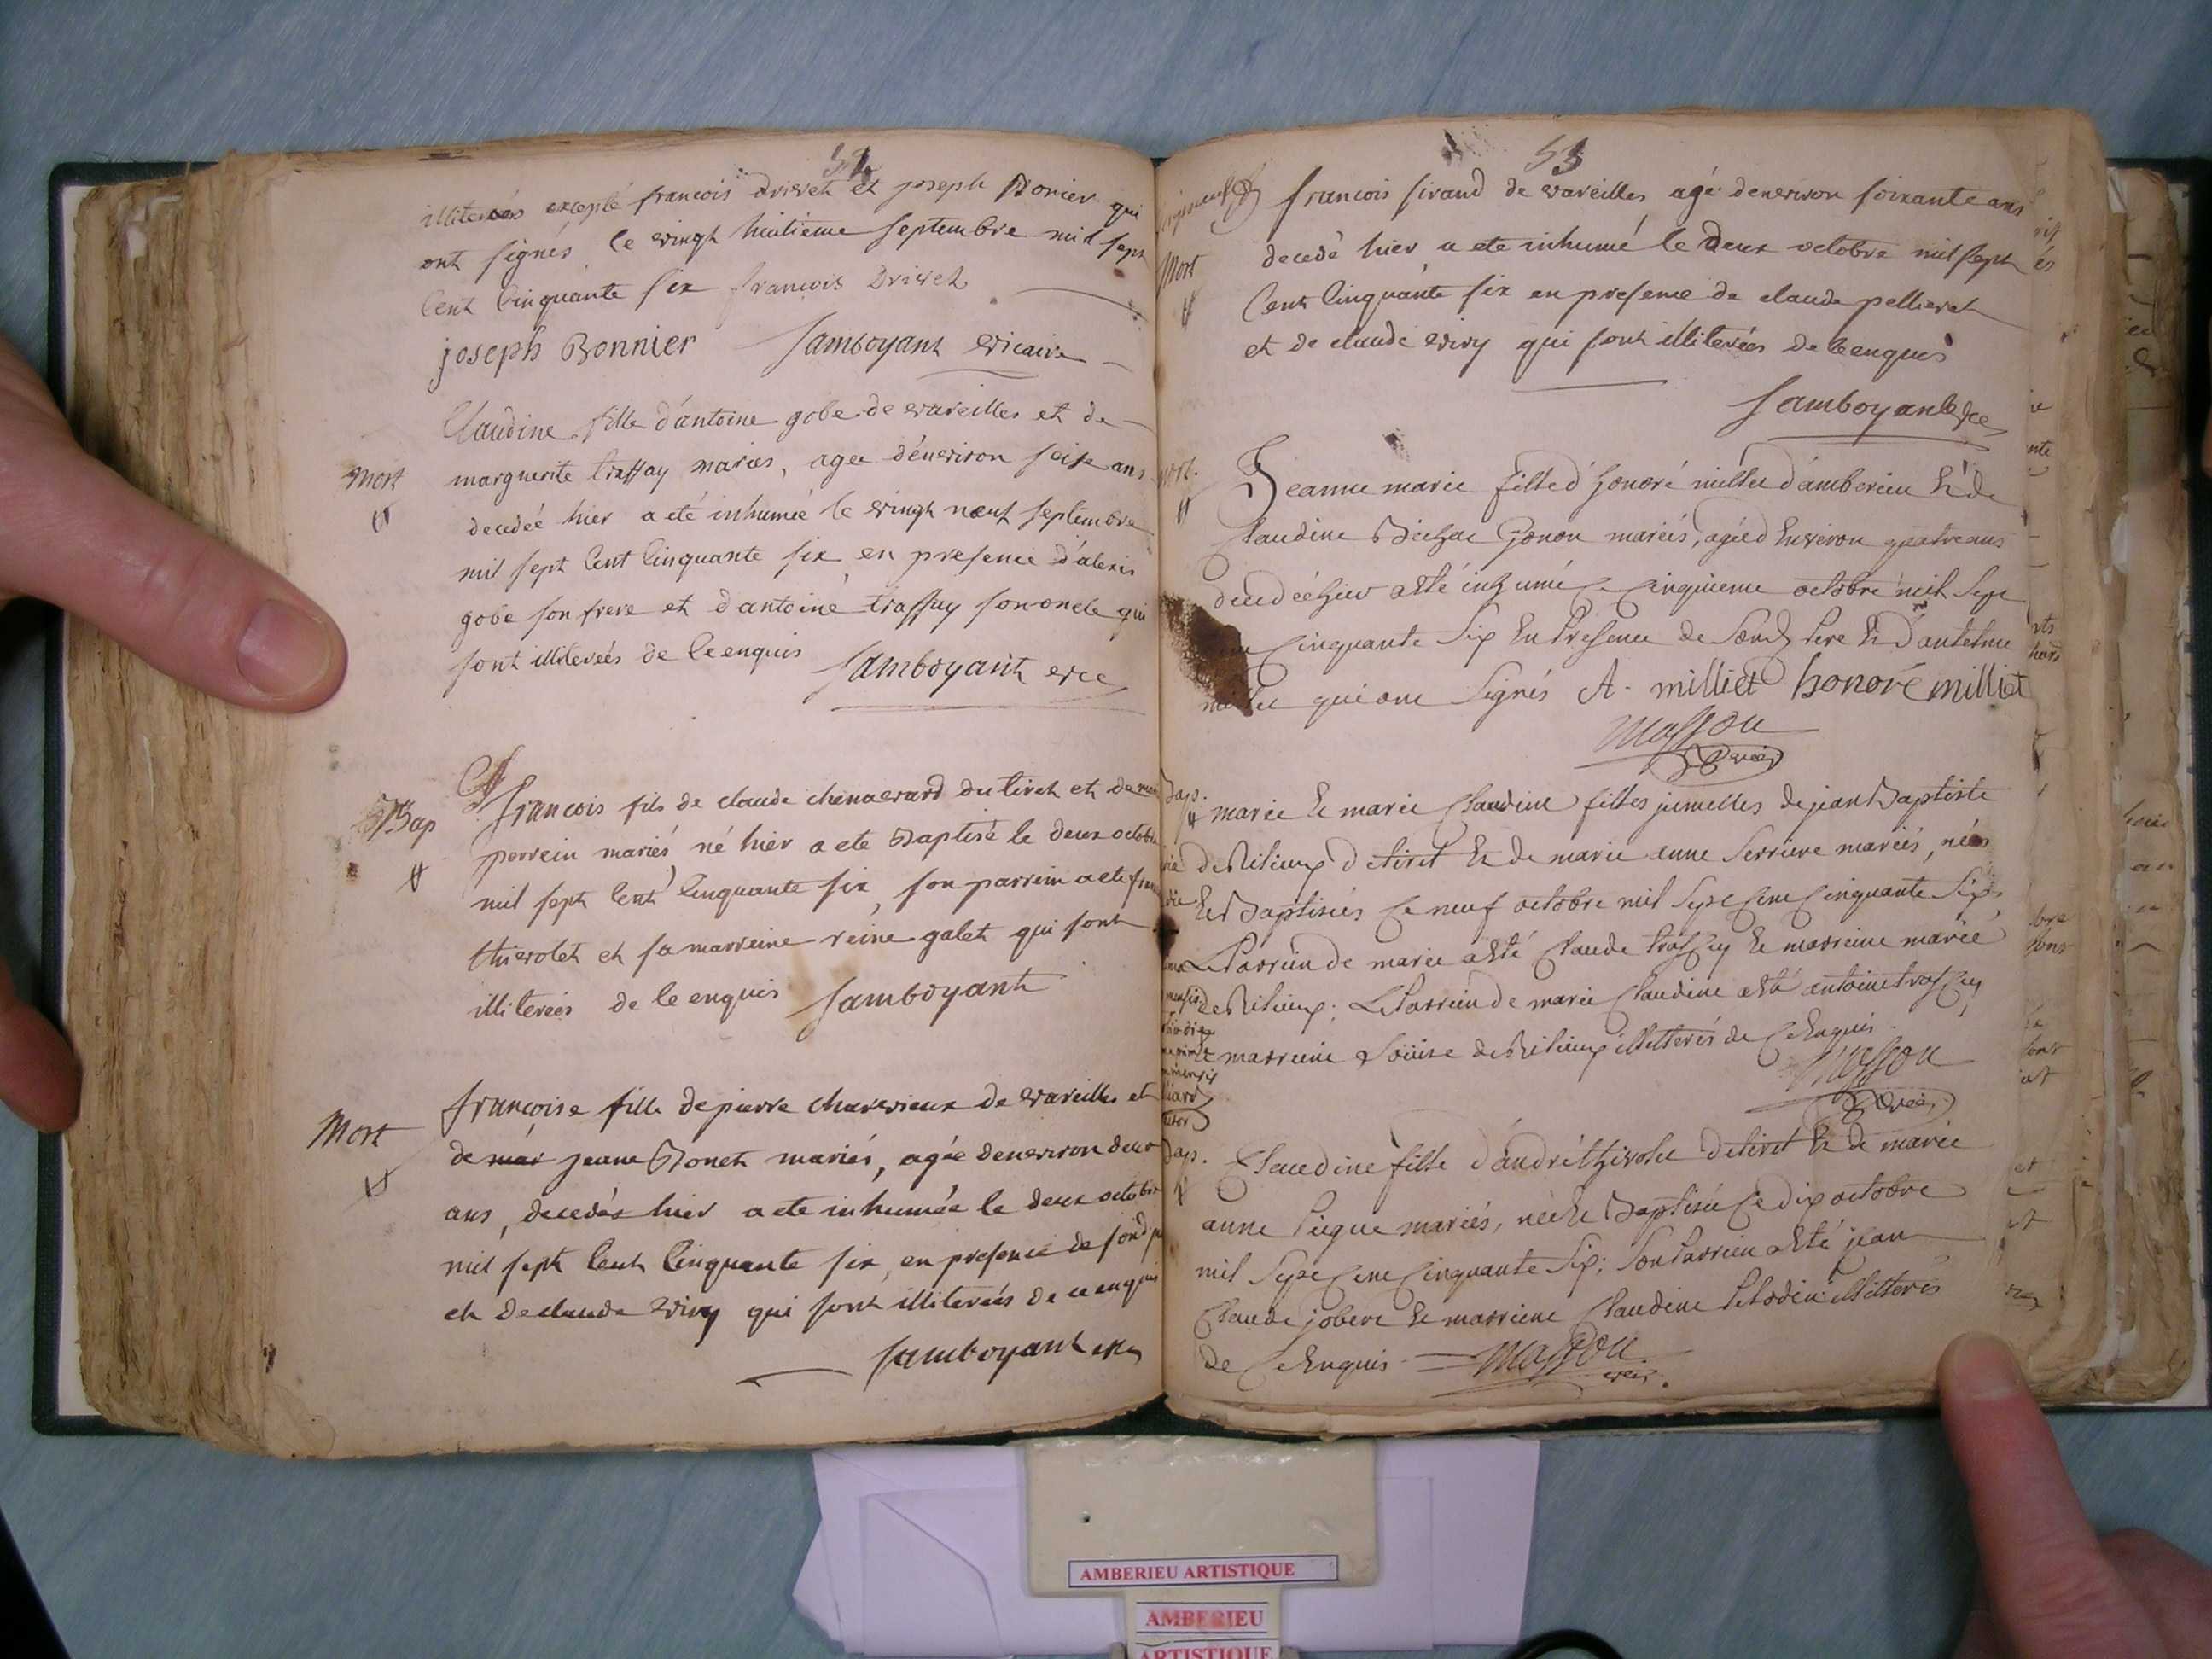 52
illiterés excepté francois Drivet et joseph Bonier qui
ont signés le vingt huitieme septembre mil sept
Cent Cinquante six francois Drivet
joseph Bonnier Jamboyant vicaire
Mort
Claudine fille d'antoine gobe de vareilles et de
marguerite traffay mariés, agée d'environ seise ans
decedée hier a eté inhumée le vingt neuf septembre
mil sept Cent Cinquante six en presence d'alexis
gobe son frere et d'antoine traffay son oncle qui
sont illiterés de ce enquis Jamboyant vce
Bap
francois fils de claude chenavard du tiret et de
perrein mariés né hier a ete Baptisé le deux octobre
mil sept Cent Cinquante six, son parrein a ete
thievolet et sa marreine reine galet qui sont
illiterés de Ce enquis Jamboyant
Mort
françoise fille de pierre charvieux de vareilles et
de mar jeane Bonet mariés, agée denviron deux
ans, decedée hier a ete inhumée le deux octobre
mil sept Cent Cinquante six, en presence de sond
et de claude vivy qui sont illiterés de ce enquis
Jamboyant
53
francois sirand de vareilles agé denviron soixante ans
Mort
decedé hier a ete inhumé le Deux octobre mil sept
Cent Cinquante six en presence de claude pellieret
et de claude vivy qui sont illiterés de Ce enquis
Jamboyant vce
mort.
Jeanne marie fille d'honoré milliet d'amberieu et de
Claudine Gonon mariés, agée d'Environ quatre ans
decedée hier a esté inhumé Ce Cinquieme octobre mil Sept
Cinquante Six En Presence de Sond Pere et d'antelme
qui ont Signés A. milliet honoré milliet
Masson
vce
Bap.
marie et marie Claudine filles jumelles de jean Baptiste
de Rilieux de tiret et de marie anne Serriere mariés, nées
et Baptisées Ce neuf octobre mil Sept Cent Cinquante Six.
Le Parrein de marie a esté Claude traffey et marreine marie
de Rilieux; Le Parrein de marie Claudine a esté antoine traffey
et marreine Loüise de Rilieux illitterés de Ce Enquis.
Masson
vce
Bap.
Claudine fille d'andré thievolet de tiret et de marie
anne Pugue mariés, née et Baptisée Ce dix octobre
mil Sept Cent Cinquante Six; Son Parrein a esté jean
Claude jobert et marreine Claudine illitterés
de Ce Enquis Masson
vce.
AMBERIEU ARTISTIQUE
AMBERIEU
ARTISTIQUE